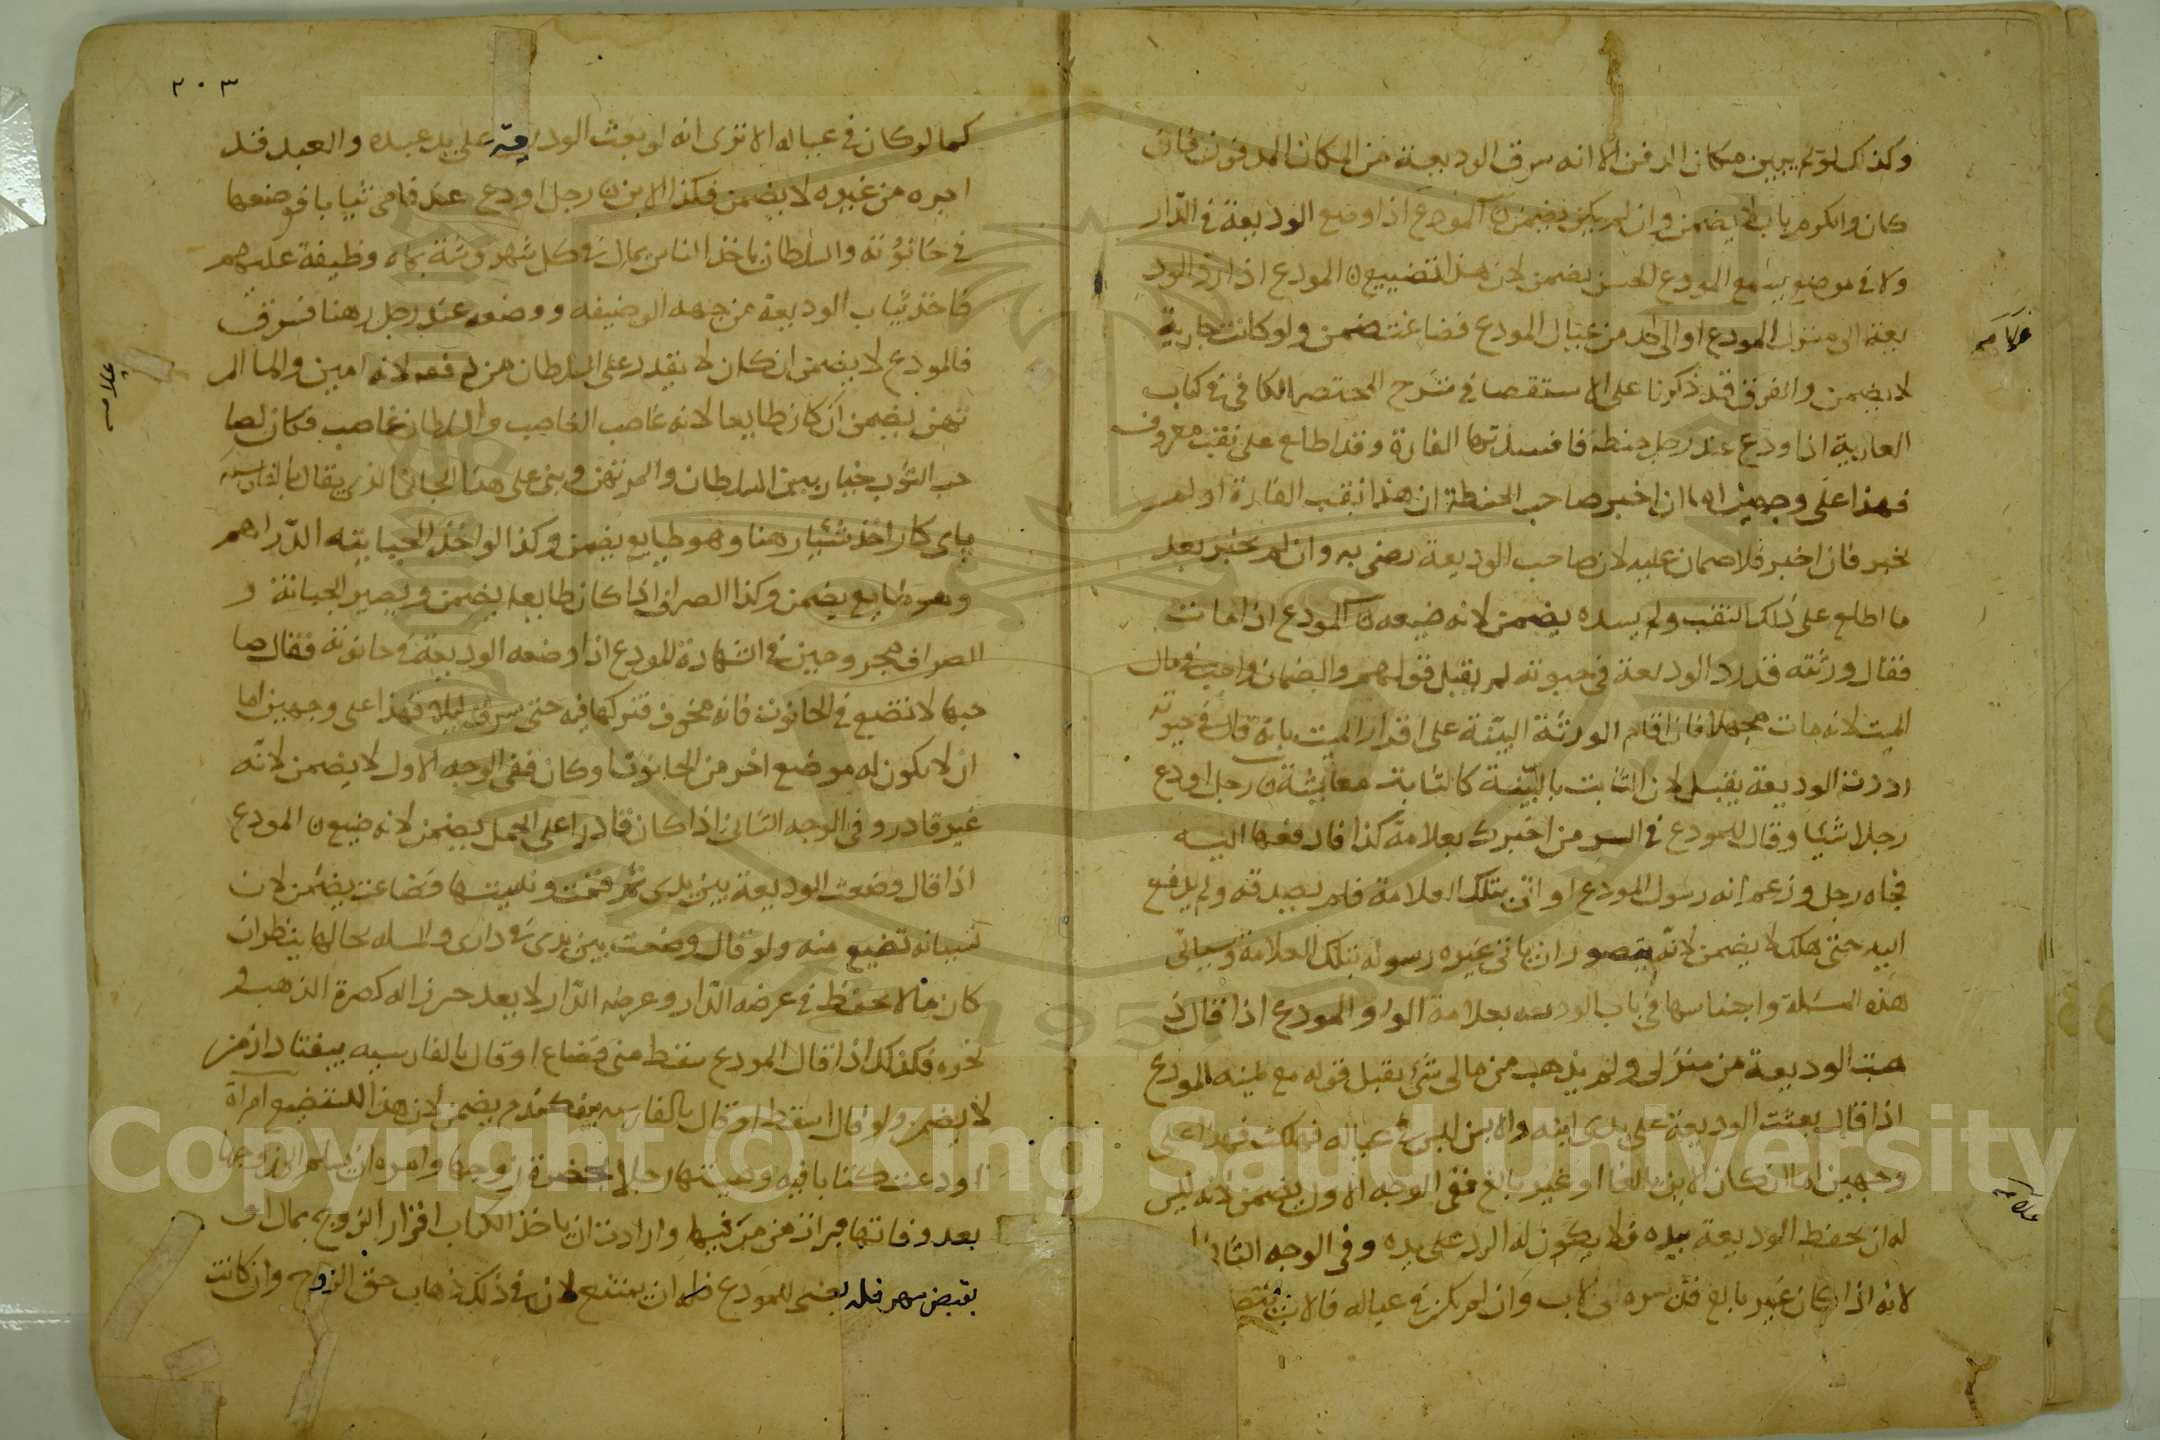 وكذلك لو لم يبين مكان الدفن الا انه سرق الوديعة من المكان المدفون فان
كان والكرم باب يضمن وان لم يكن يضمن ن المودع اذا وضع الوديعة في الدار
ولا في موضع يسمع المودع الحس يضمن لان هذا تضييع ن المودع اذا رد الود
يعة الى منزل المودع او الى احد من عيال المودع فضاعت ضمن ولو كانت عارية
لا يضمن والفرق قد ذكرنا على الاستقصا في شرح المختصر الكافي في كتاب
العارية اذا اودع عند رجل حنطة فافسدتها الفارة وقد اطلع على نقب معروف
فهذا على وجهين اما ان اخبر صاحب الحنطة ان هذا نقب الفارة او لم
يخبر فان اخبر فلا ضمان عليه لان صاحب الوديعة رضى به وان لم يخبر بعد
ما اطلع على ذلك النقب ولم يسده يضمن لانه ضيعه ن المودع اذا مات
فقال ورثته قد رد الوديعة في حيوته لم يقبل قولهم والضمان واجب في مال
الميت لانه مات مجهلا فان اقام الورثة البينة على اقرار الميت بانه قال في حيوته
رددت الوديعة يقبل لان الثابت بالبينة كالثابت معاينة ن رجل اودع
رجلا شيا وقال للمودع في السر من اخبرك بعلامة كذا فادفعها اليه
فجاه رجل وزعم انه رسول المودع او اتى بتلك العلامة فلم يصدقه ولم يدفع
اليه حتى هلك لا يضمن لانه يتصور ان ياتي غيره رسوله بتلك العلامة وسياتى
هذه المسئلة واجناسها في باب الوديعة بعلامة الواو المودع اذا قال ذ
هبت الوديعة من منزلى ولم يذهب من مالى شئ يقبل قوله مع يمينه المودع
اذا قال بعثت الوديعة على يدى ابنه والابن ليس في عياله فهلكت فهذا على
وجهين اما ان كان الابن بالغا او غير بالغ ففي الوجه الاول يضمن لانه ليس
له ان يحفظ الوديعة بيده فلا يكون له الرد على يده وفي الوجه الثانى لا
لانه اذا كان غير بالغ فتدبيره الى الاب وان لم يكن في عياله فالابن
علامه
علامه
٢٠٣
كما لو كان في عياله الا ترى انه لو بعث الوديعة على يد عبده والعبد قد
اجره من غيره لا يضمن فكذا الابن ن رجل اودع عند فامى ثيابا فوضعها
في حانوته والسلطان ياخذ الناس بمال في كل شهر وظيفة عليهم
فاخذ ثياب الوديعة من جهه الوضيفه ووضعه عند رجل رهنا فسرق
فالمودع لا يضمن ان كان لا يقدر على السلطان من دفعه لانه امين واما المر
تهن يضمن ان كان طايعا لانه غاصب الغاصب والسلطان غاصب فكان لصا
حب الثوب خيار بين السلطان والمرتهن وبنى على هذا الجابى الذى يقال بالفارسيه
پاى كار اخذ شيئا رهنا وهو طايع يضمن وكذا لو اخذ الجبايته الدراهم
وهو طايع يضمن وكذا الصراف اذا كان طايعا يضمن ويصير الجبانة و
الصراف مجروحين في الشهادة المودع اذا وضعه الوديعة في حانوته فقال صا
حبها لا تضع في الحانوت فانه مخوف فتركها فيه حتى سرقت ليلا فهذا على وجهين اما
ان لا يكون له موضع اخر من الحانوت او كان ففي الوجه الاول لا يضمن لانه
غير قادر وفي الوجه الثانى اذا كان قادرا على الحمل يضمن لانه ضيع ن المودع
اذا قال وضعت الوديعة بين يدى ثم قمت ونسيتها فضاعت يضمن لان
نسيانه تضييع منه ولو قال وضعت بين يدى في دارى والمسله بحالها ينظر ان
كان مالا يحفظ في عرضه الدار وعرضه الدار لا يعد حرزا له كصرة الذهب و
نحوه فكذلك اذا قال المودع سقط منى فضاع او قال بالفارسيه بيفتاد از من
لا يضمن ولو قال اسقط او قال بالفارسيه بيفكندم يضمن لان هذا اللتضييع امراة
اودعت كتابا فيه وصيتها رجلا بحضرة زوجها وامره ان يسلم الى زوجها
بعد وفاتها فبرات من مرضها وارادت ان ياخذ الكتاب اقرار الزوج بمال او
بقبض مهر فله يعنى للمودع ان يمتنع لان في ذلك ذهاب حق الزوج وان كانت
علامه